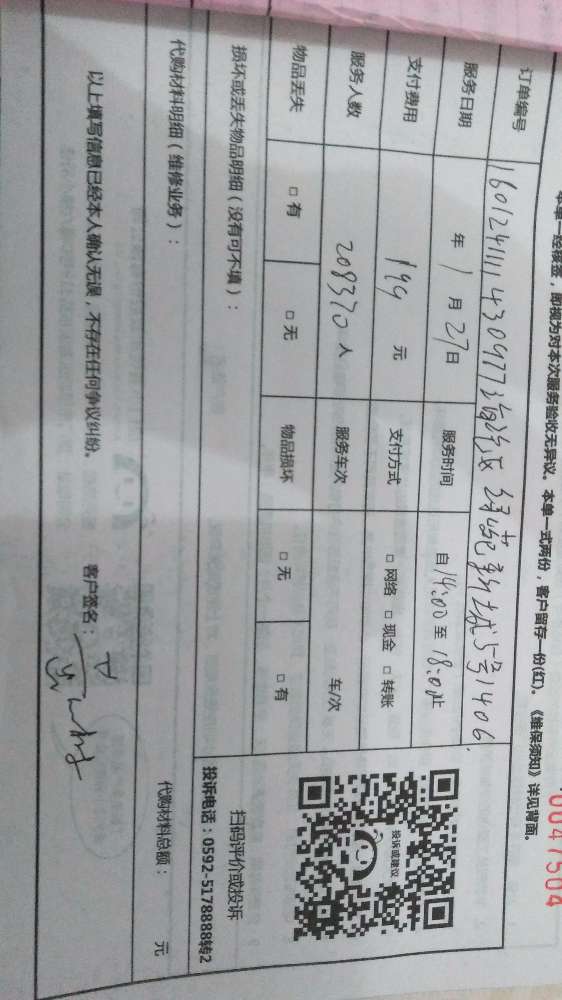 本单一经核签，即视为对本次服务验收无异议。本单一式两份，客户留存一份(红)。《维保须知》详见背面。
0047504
订单编号 160124111430977海沧区绿苑新城5号1406.
服务日期 年 1 月 27 日 服务时间 自 14:00 至 18:00 止
支付费用 199 元 支付方式 □ 网络 □ 现金 □ 转账
服务人数 208370 人 服务车次 车/次
物品丢失 □ 有 □ 无 物品损坏 □ 无 □ 有
投诉或建议
扫码评价或投诉
投诉电话：0592-5178888转2
损坏或丢失物品明细（没有可不填）：
代购材料明细（维修业务）：
代购材料总额： 元
以上填写信息已经本人确认无误，不存在任何争议纠纷。 客户签名：